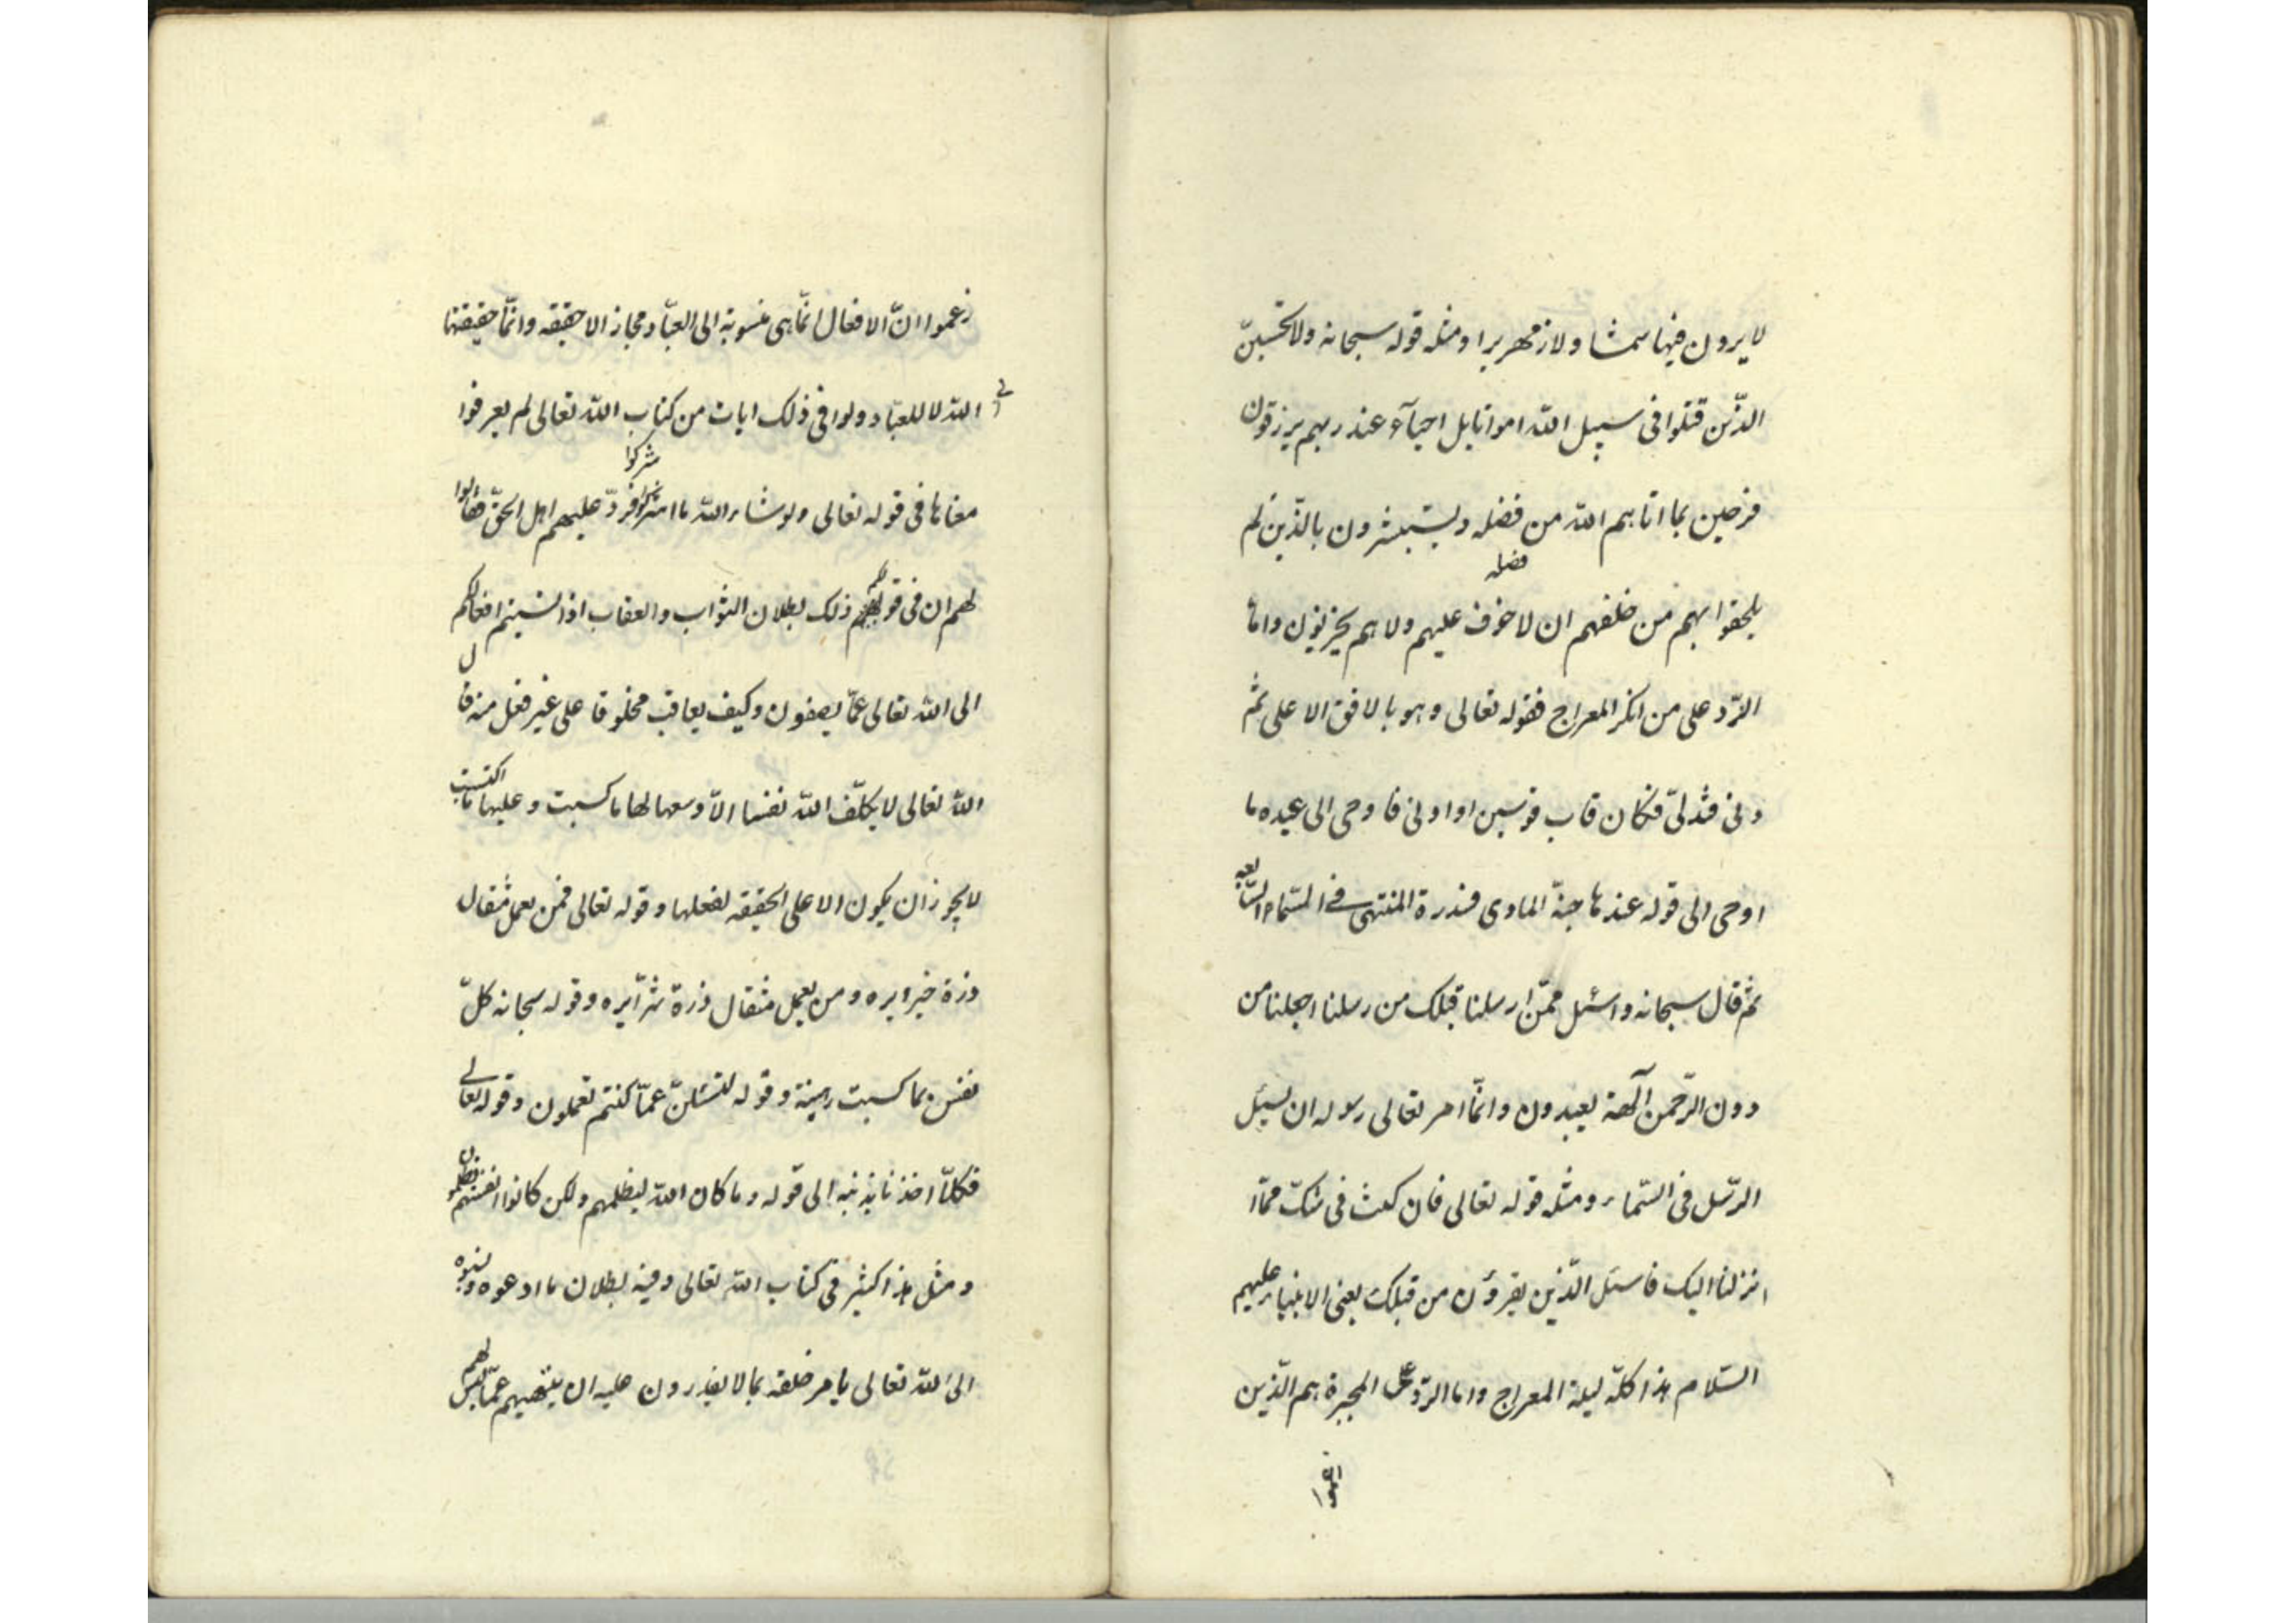 لا يرون فيها شمسا ولا زمهريرا ومثله قوله سبحانه ولا تحسبنّ
الذّين قتلوا فى سبيل اللّه امواتا بل احيآء عند ربهم يرزقون
فرحين بما اتاهم اللّه من فضله ويستبشرون بالذّين لم
فضله
يلحقوا بهم من خلفهم ان لا خوف عليهم ولا هم يحزنون وامّا
الرّد على من انكر المعراج فقوله تعالى وهو بالافق الاعلى ثمّ
دنى فتدلىّ فكان قاب قوسين او ادنى فاوحى الى عبده ما
اوحى الى قوله عندها جنّة الماوى فسدرة المنتهى فے السّماء السّابعه
ثمّ قال سبحانه واسئل ممّن ارسلنا قبلك من رسلنا اجعلنا من
دون الرّحمن آلهة يعبدون وانّما امر تعالى رسوله ان يسئل
الرّسل فى السّماء ومثله قوله تعالى فان كنت فى شكّ ممّا
انزلنا اليك فاسئل الذّين يقرؤن من قبلك يعنى الانبياء عليهم
السّلام هذا كلّه ليلة المعراج واما الرّد على المجبرة هم الذّين
زعموا
زعموا انّ الافعال انمّا هى منسوبة الى العبّاد مجازا لا حقيقه وانمّا حقيقتها
للّه لا للعبّاد ولوا فى ذلك ايات من كتاب اللّه تعالى لم يعرفوا
شركوا
معناها فى قوله تعالى ولو شاء اللّه ما اشركوا فردّ عليهم اهل الحقّ فقالوا
لهم ان فى قولكم ذلك بطلان الثواب والعقاب اذا نسبتم افعالكم
الى اللّه تعالى عمّا يصفون وكيف يعاقب مخلوقا على غير فعل منه قال
اللّه تعالى لا يكلّف اللّه نفسا الاّ وسعها لها ما كسبت وعليها ما اكتسبت
لا يجوز ان يكون الا على الحقيقه لفعلها وقوله تعالى فمن يعمل مثقال
ذرة خيرا يره ومن يعمل مثقال ذرة شرّا يره وقوله سبحانه كلّ
نفس بما كسبت رهينة وقوله لتسئلنّ عمّا كنتم تعملون وقوله تعالى
فكلاّ اخذنا بذنبه الى قوله وما كان اللّه ليظلمهم ولكن كانوا انفسهم يظلمون
ومثل هذا كثير فى كتاب اللّه تعالى وفيه بطلان ما ادعوه ونسبوه
الى اللّه تعالى يامر خلقه بما لا يقدرون عليه ان ينهيهم عمّا ليس لهم